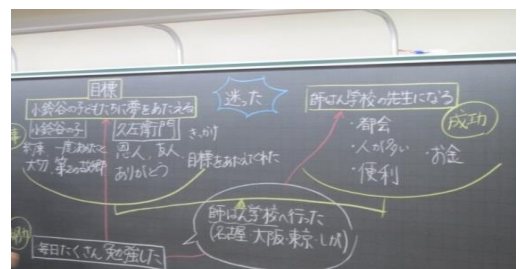 目標
小鈴谷の子どもたちに夢をあたえる
小鈴谷の子
大切、第2の故郷
久左衛門
恩人、友人
ありがとう
きっかけ
目標をあたえてくれた
迷った
師はん学校の先生になる
・都会
・人が多い
・便利
・お金
成功
師はん学校へ行った
(名古屋・大阪・東京・しが)
毎日たくさん勉強した